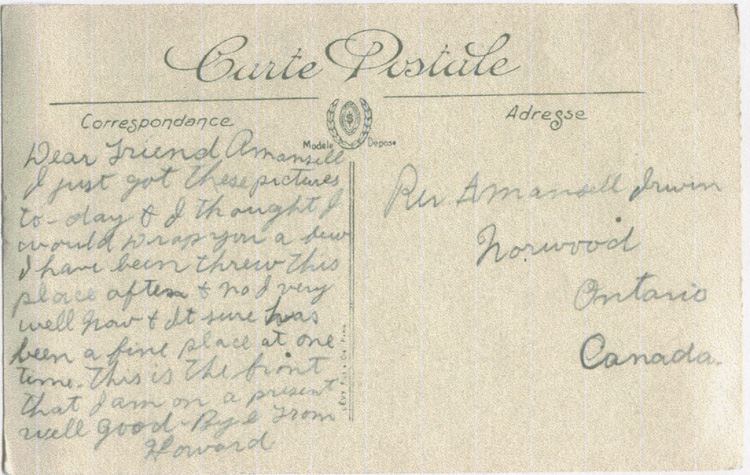 Carte Postale
Correspondance
Adresse
Modele Depose
Dear Friend Amansell
I just got these pictures
to-day & I thought I
would drop you a few
I have been threw this
place often & no I very
well now & It sure has
been a fine place at one
time. This is the front
that I am on a present
well good-Bye From
Howard
Rev A Mansell Irwin
Norwood
Ontario
Canada.